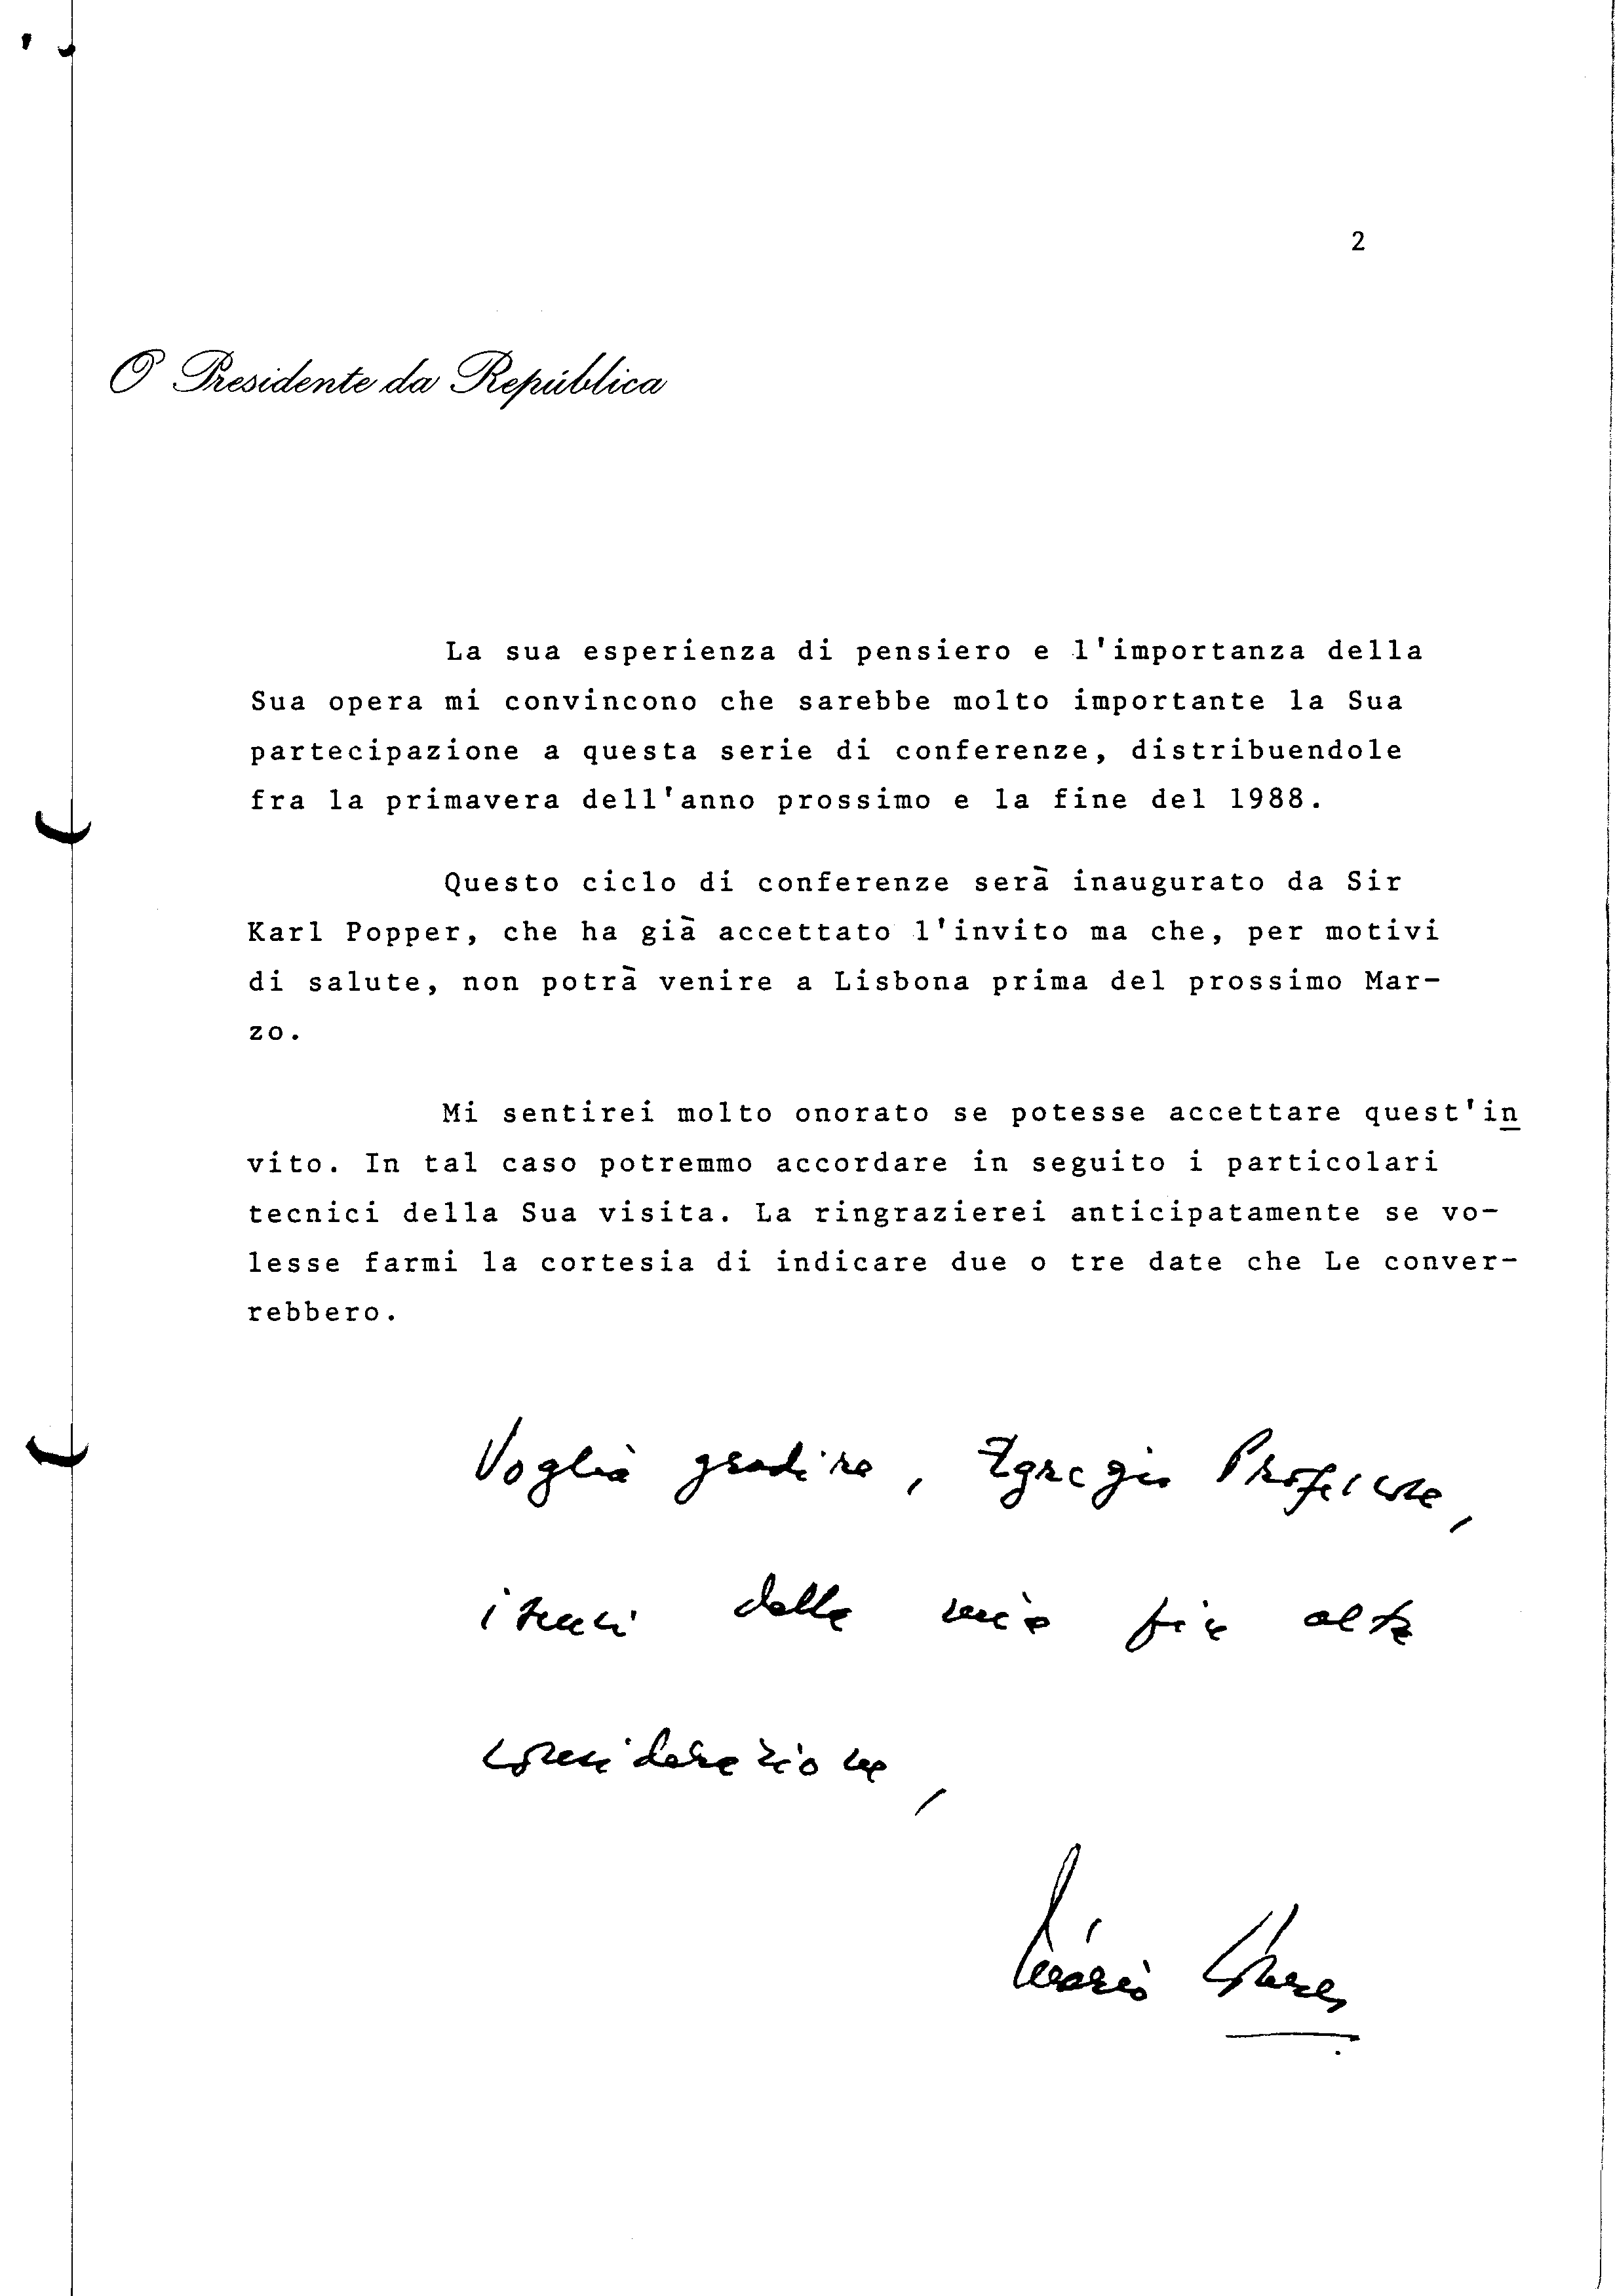 2
O Presidente da República
La sua esperienza di pensiero e l'importanza della
Sua opera mi convincono che sarebbe molto importante la Sua
partecipazione a questa serie di conferenze, distribuendole
fra la primavera dell'anno prossimo e la fine del 1988.
Questo ciclo di conferenze serà inaugurato da Sir
Karl Popper, che ha già accettato l'invito ma che, per motivi
di salute, non potrà venire a Lisbona prima del prossimo Mar-
zo.
Mi sentirei molto onorato se potesse accettare quest'in
vito. In tal caso potremmo accordare in seguito i particolari
tecnici della Sua visita. La ringrazierei anticipatamente se vo-
lesse farmi la cortesia di indicare due o tre date che Le conver-
rebbero.
Voglia gradire, Egregio Professore,
i sensi della mia più alta
considerazione,
Mário Soares